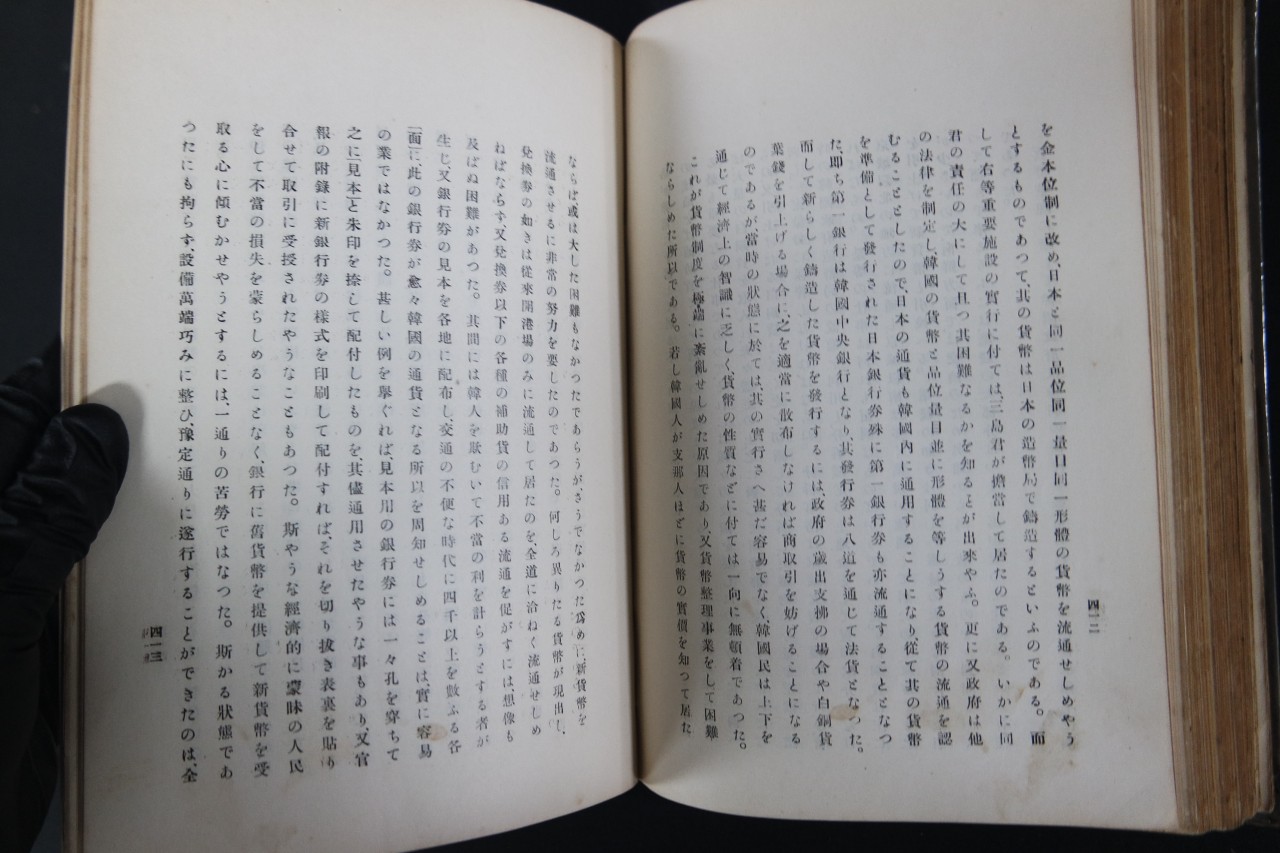 を金本位制に改め、日本と同一品位同一量目同一形體の貨幣を流通せしめやう
とするものであつて、其の貨幣は日本の造幣局で鑄造するといふのである。而
して右等重要施設の實行に付ては、三島君が擔當して居たのである。いかに同
君の責任の大にして且つ其困難なるかを知るとが出來やふ。更に又政府は他
の法律を制定し、韓國の貨幣と品位量目並に形體を等しうする貨幣の流通を認
むることとしたので、日本の通貨も韓國內に通用することになり、從て其の貨幣
を準備として發行された日本銀行券殊に第一銀行券も亦流通することとなつ
た、卽ち第一銀行は韓國中央銀行となり、其發行券は八道を通じて法貨となつた。
而して新らしく鑄造した貨幣を發行するには、政府の歲出支拂の場合や白銅貨
葉錢を引上げる場合に、之を適當に散布しなければ商取引を妨げることになる
のであるが、當時の狀態に於ては、其の實行さへ甚だ容易でなく、韓國民は上下を
通じて經濟上の智識に乏しく、貨幣の性質などに付ては一向に無頓着であつた。
これが貨幣制度を極端に紊亂せしめた原因であり、又貨幣整理事業をして困難
ならしめた所以である。若し韓國人が支那人ほどに貨幣の實價を知つて居た
四一二
ならば或は大した困難もなかつたであらうがさうでなかつた爲めに新貨幣を
流通させるに非常の努力を要したのであつた。何しろ異りたる貨幣が現出し、
兌換券の如きは從來開港場のみに流通して居たのを、全道に洽ねく流通せしめ
ねばならず、又兌換券以下の各種の補助貨の信用ある流通を促がすには、想像も
及ばぬ困難があつた。其間には韓人を欺むいて不當の利を計らうとする者が
生じ、又銀行券の見本を各地に配布し、交通の不便な時代に四千以上を數ふる各
「面」に、此の銀行券が愈々韓國の通貨となる所以を周知せしめることは、實に容易
の業ではなかつた。甚しい例を擧ぐれば、見本用の銀行券には一々孔を穿ちて
之に「見本」と朱印を捺して配付したものを、其儘通用させたやうな事もあり、又官
報の附錄に新銀行券の樣式を印刷して配付すれば、それを切り拔き表裏を貼り
合せて取引に受授されたやうなこともあつた。斯やうな經濟的に蒙昧の人民
をして不當の損失を蒙らしめることなく、銀行に舊貨幣を提供して新貨幣を受
取る心に傾むかせやうとするには、一通りの苦勞ではなつた。斯かる狀態であ
つたにも拘らず、設備萬端巧みに整ひ、豫定通りに遂行することができたのは、全
四一三